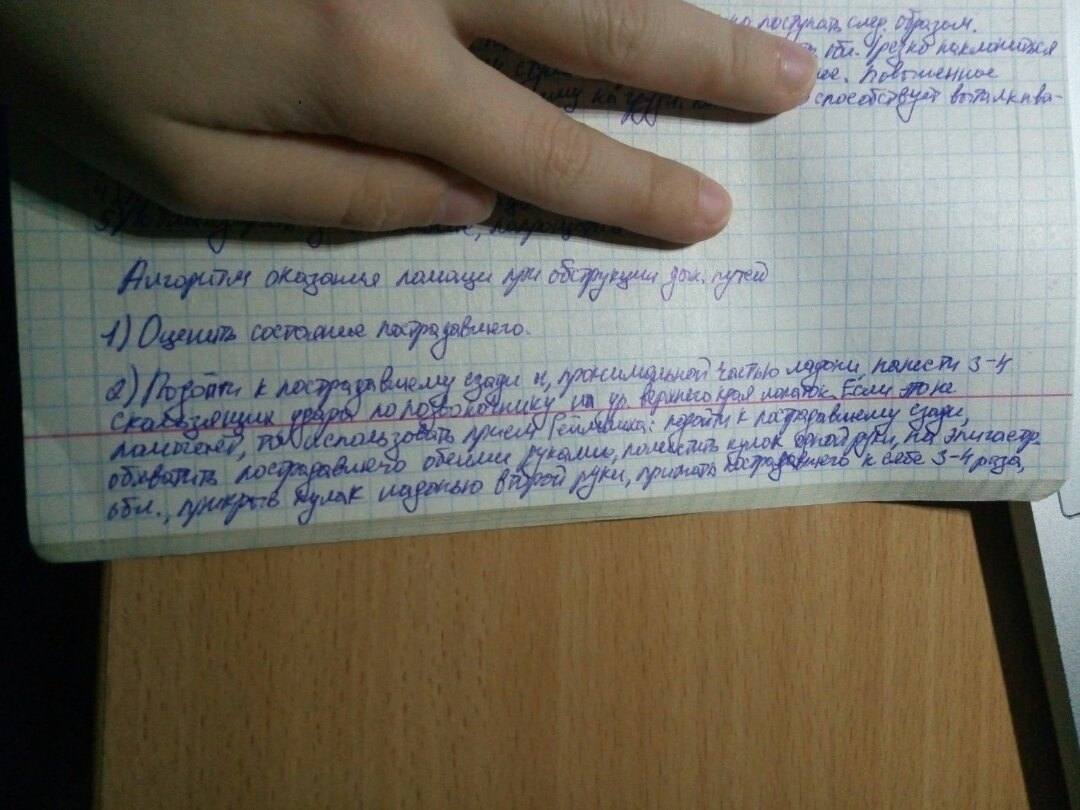 поступать след. образом.
обл. Грудью наклониться
Повышенное
способствует выталкива-
Алгоритм оказания помощи при обструкции дых. путей
1) Оценить состояние пострадавшего.
2) Подойти к пострадавшему сзади и, проксимальной частью ладони, нанести 3-4
скользящих удара по позвоночнику на ур. верхнего края лопаток. Если это не
помогает, то использовать приём Геймлиха: подойти к пострадавшему сзади,
обхватить пострадавшего обеими руками, поместить кулак одной руки, на эпигастр.
обл., прикрыв кулак ладонью второй руки, прижать пострадавшего к себе 3-4 раза,